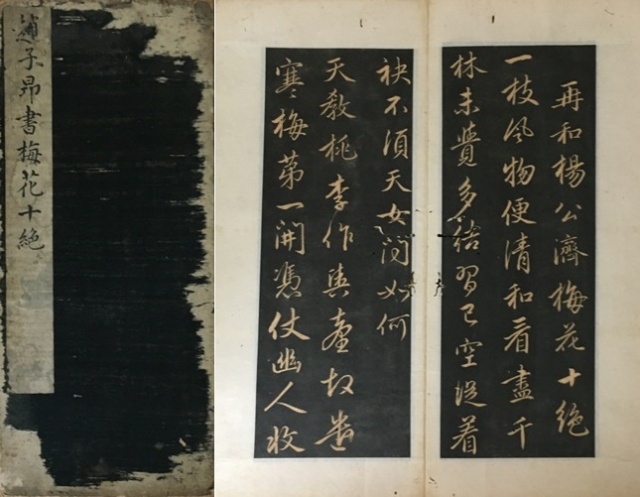 趙子昂書梅花十絶
再和楊公濟梅花十絶
一枝風物便清和看盡千
林未覺多結習已空從着
袂不須天女問如何
天教桃李作輿臺故遣
寒梅第一開憑仗幽人收